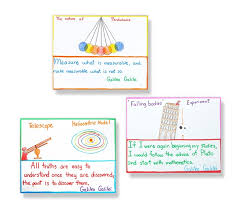 The nature of Pendulums
Measure what is measurable, and
make measurable what is not so.
Galileo Galilei
Falling bodies Experiment
If I were again beginning my studies,
I would follow the advice of Plato
and start with mathematics.
Galileo Galilei
Telescope
Heliocentric Model
All truths are easy to
understand once they are discovered;
the point is to discover them.
Galileo Galilei